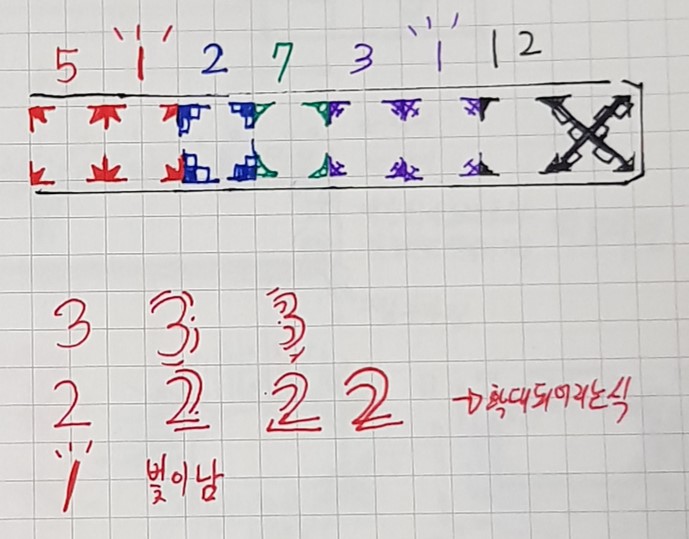 5 1 2 7 3 1 1 2
3 3 3
2 2 2 2 →확대되어지는식
1 빛이남